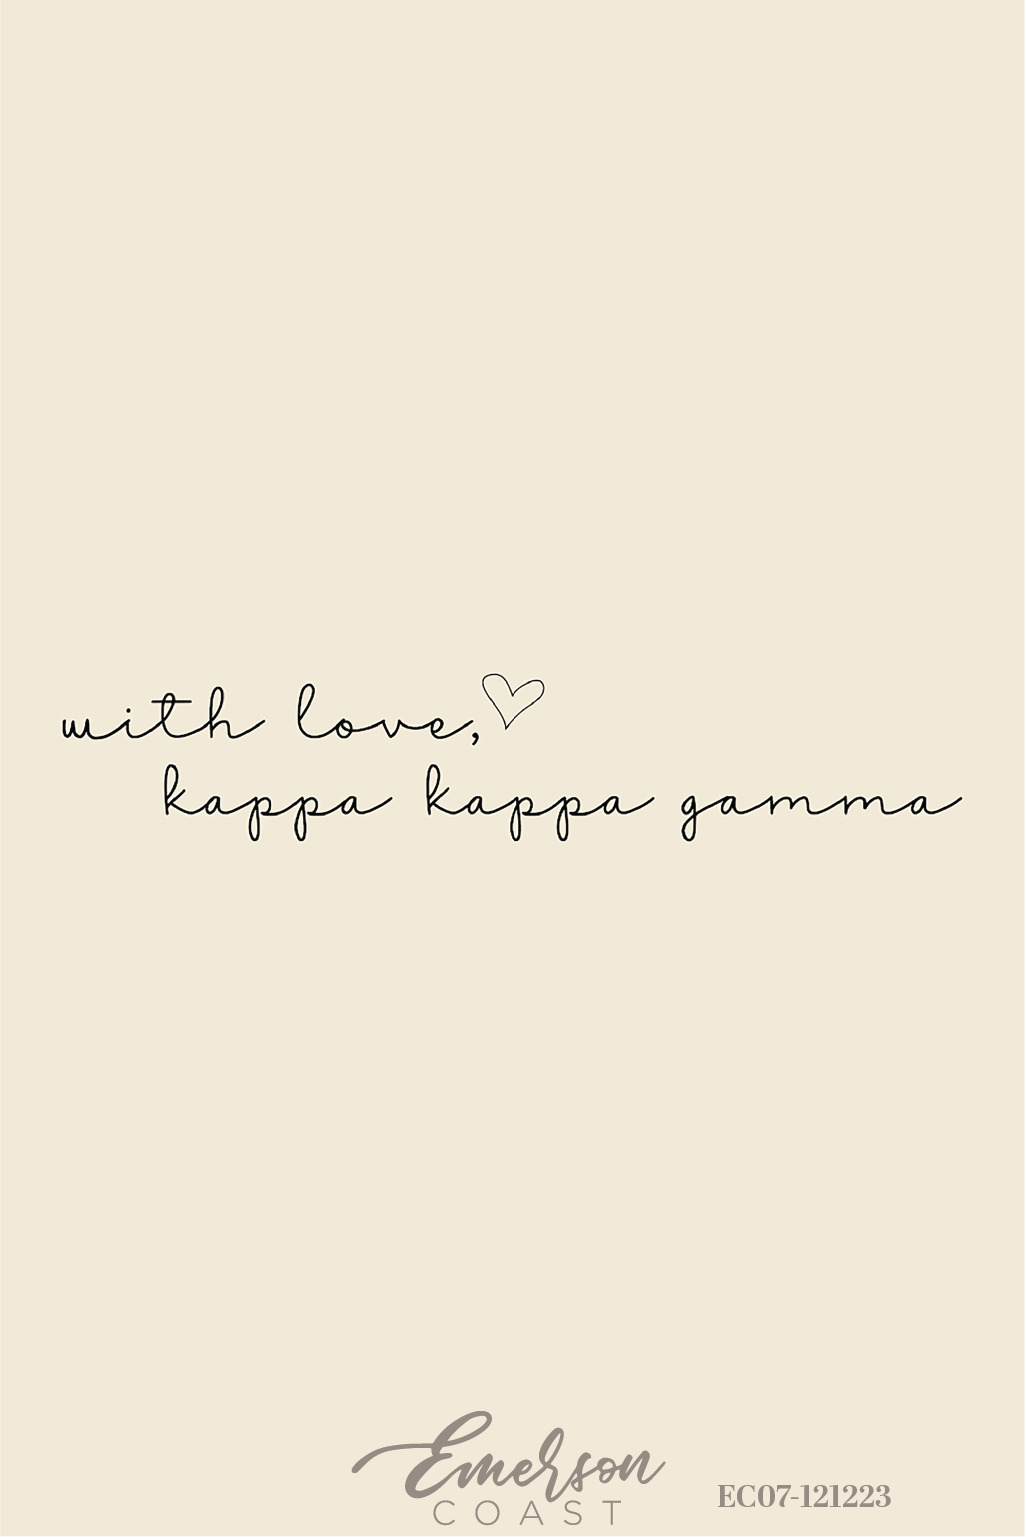 with love,
kappa kappa gamma
Emerson
COAST
EC07-121223